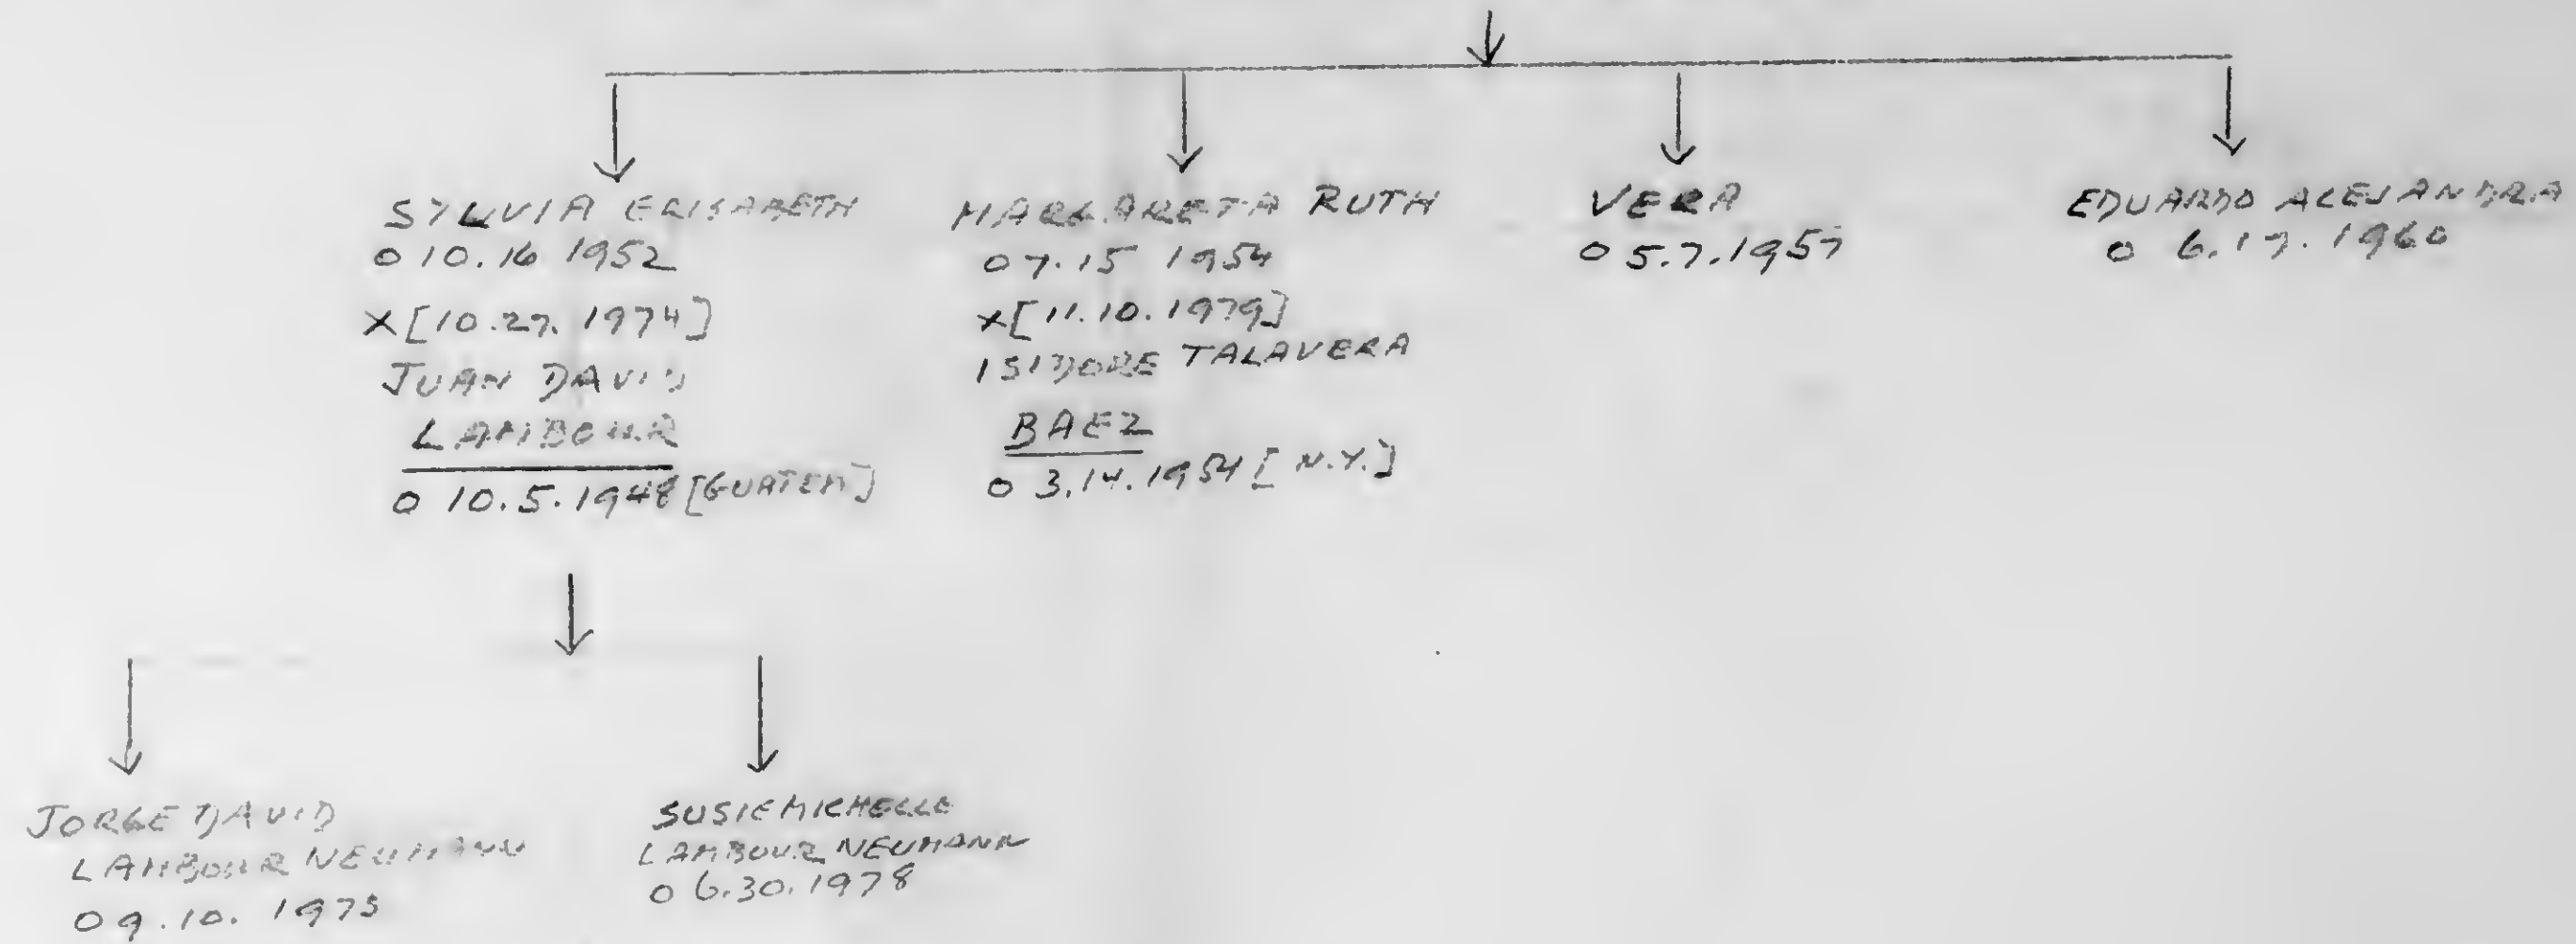 SYLVIA ELISABETH
O 10.16 1952
X [10.27.1974]
JUAN DAVID
LAMBOUR
O 10.5.1948 [GUATEM]
MARGARETA RUTH
O 7.15 1954
X [11.10.1979]
ISIDORE TALAVERA
BAEZ
O 3.14.1954 [N.Y.]
VERA
O 5.7.1957
EDUARDO ALEJANDRA
O 6.17.1960
JORGE DAVID
LAMBOUR NEUMANN
O 9.10.1975
SUSIE MICHELLE
LAMBOUR NEUMANN
O 6.30.1978